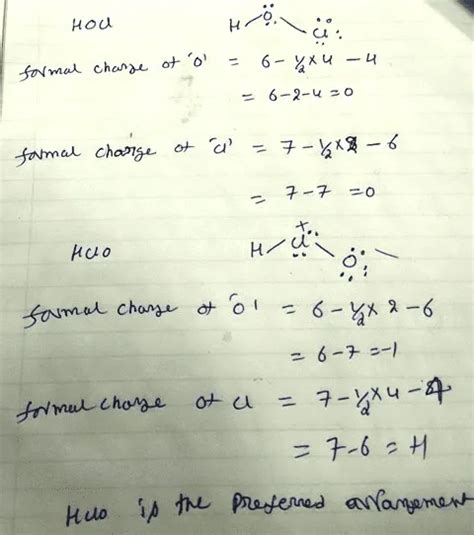 HOCl H O Cl
formal charge of 'O' = 6 - 1/2 x 4 - 4
= 6 - 2 - 4 = 0
formal charge of 'Cl' = 7 - 1/2 x 2 - 6
= 7 - 7 = 0
HClO H Cl + O -
formal charge of 'O' = 6 - 1/2 x 2 - 6
= 6 - 7 = -1
formal charge of Cl = 7 - 1/2 x 4 - 4
= 7 - 6 = +1
HClO is the preferred arrangement